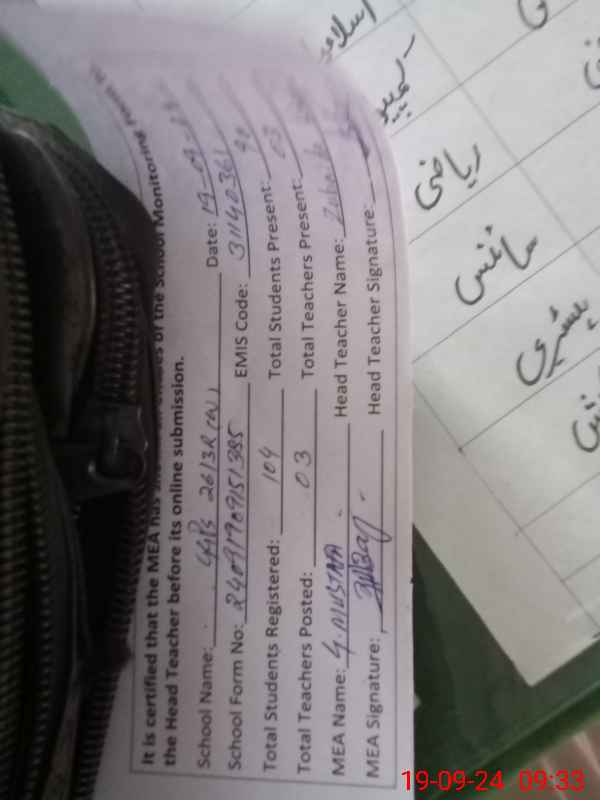 It is certified that the MEA has of the School Monitoring
the Head Teacher before its online submission.
School Name: 26/3R Date: 19-09-
School Form No: 24091909151385 EMIS Code: 31140361
Total Students Registered: 104 Total Students Present: 90
Total Teachers Posted: 03 Total Teachers Present: 03
MEA Name: G. MUSTAFA Head Teacher Name:
MEA Signature: Head Teacher Signature:
ریاضی
سائنس
19-09-24 09:33